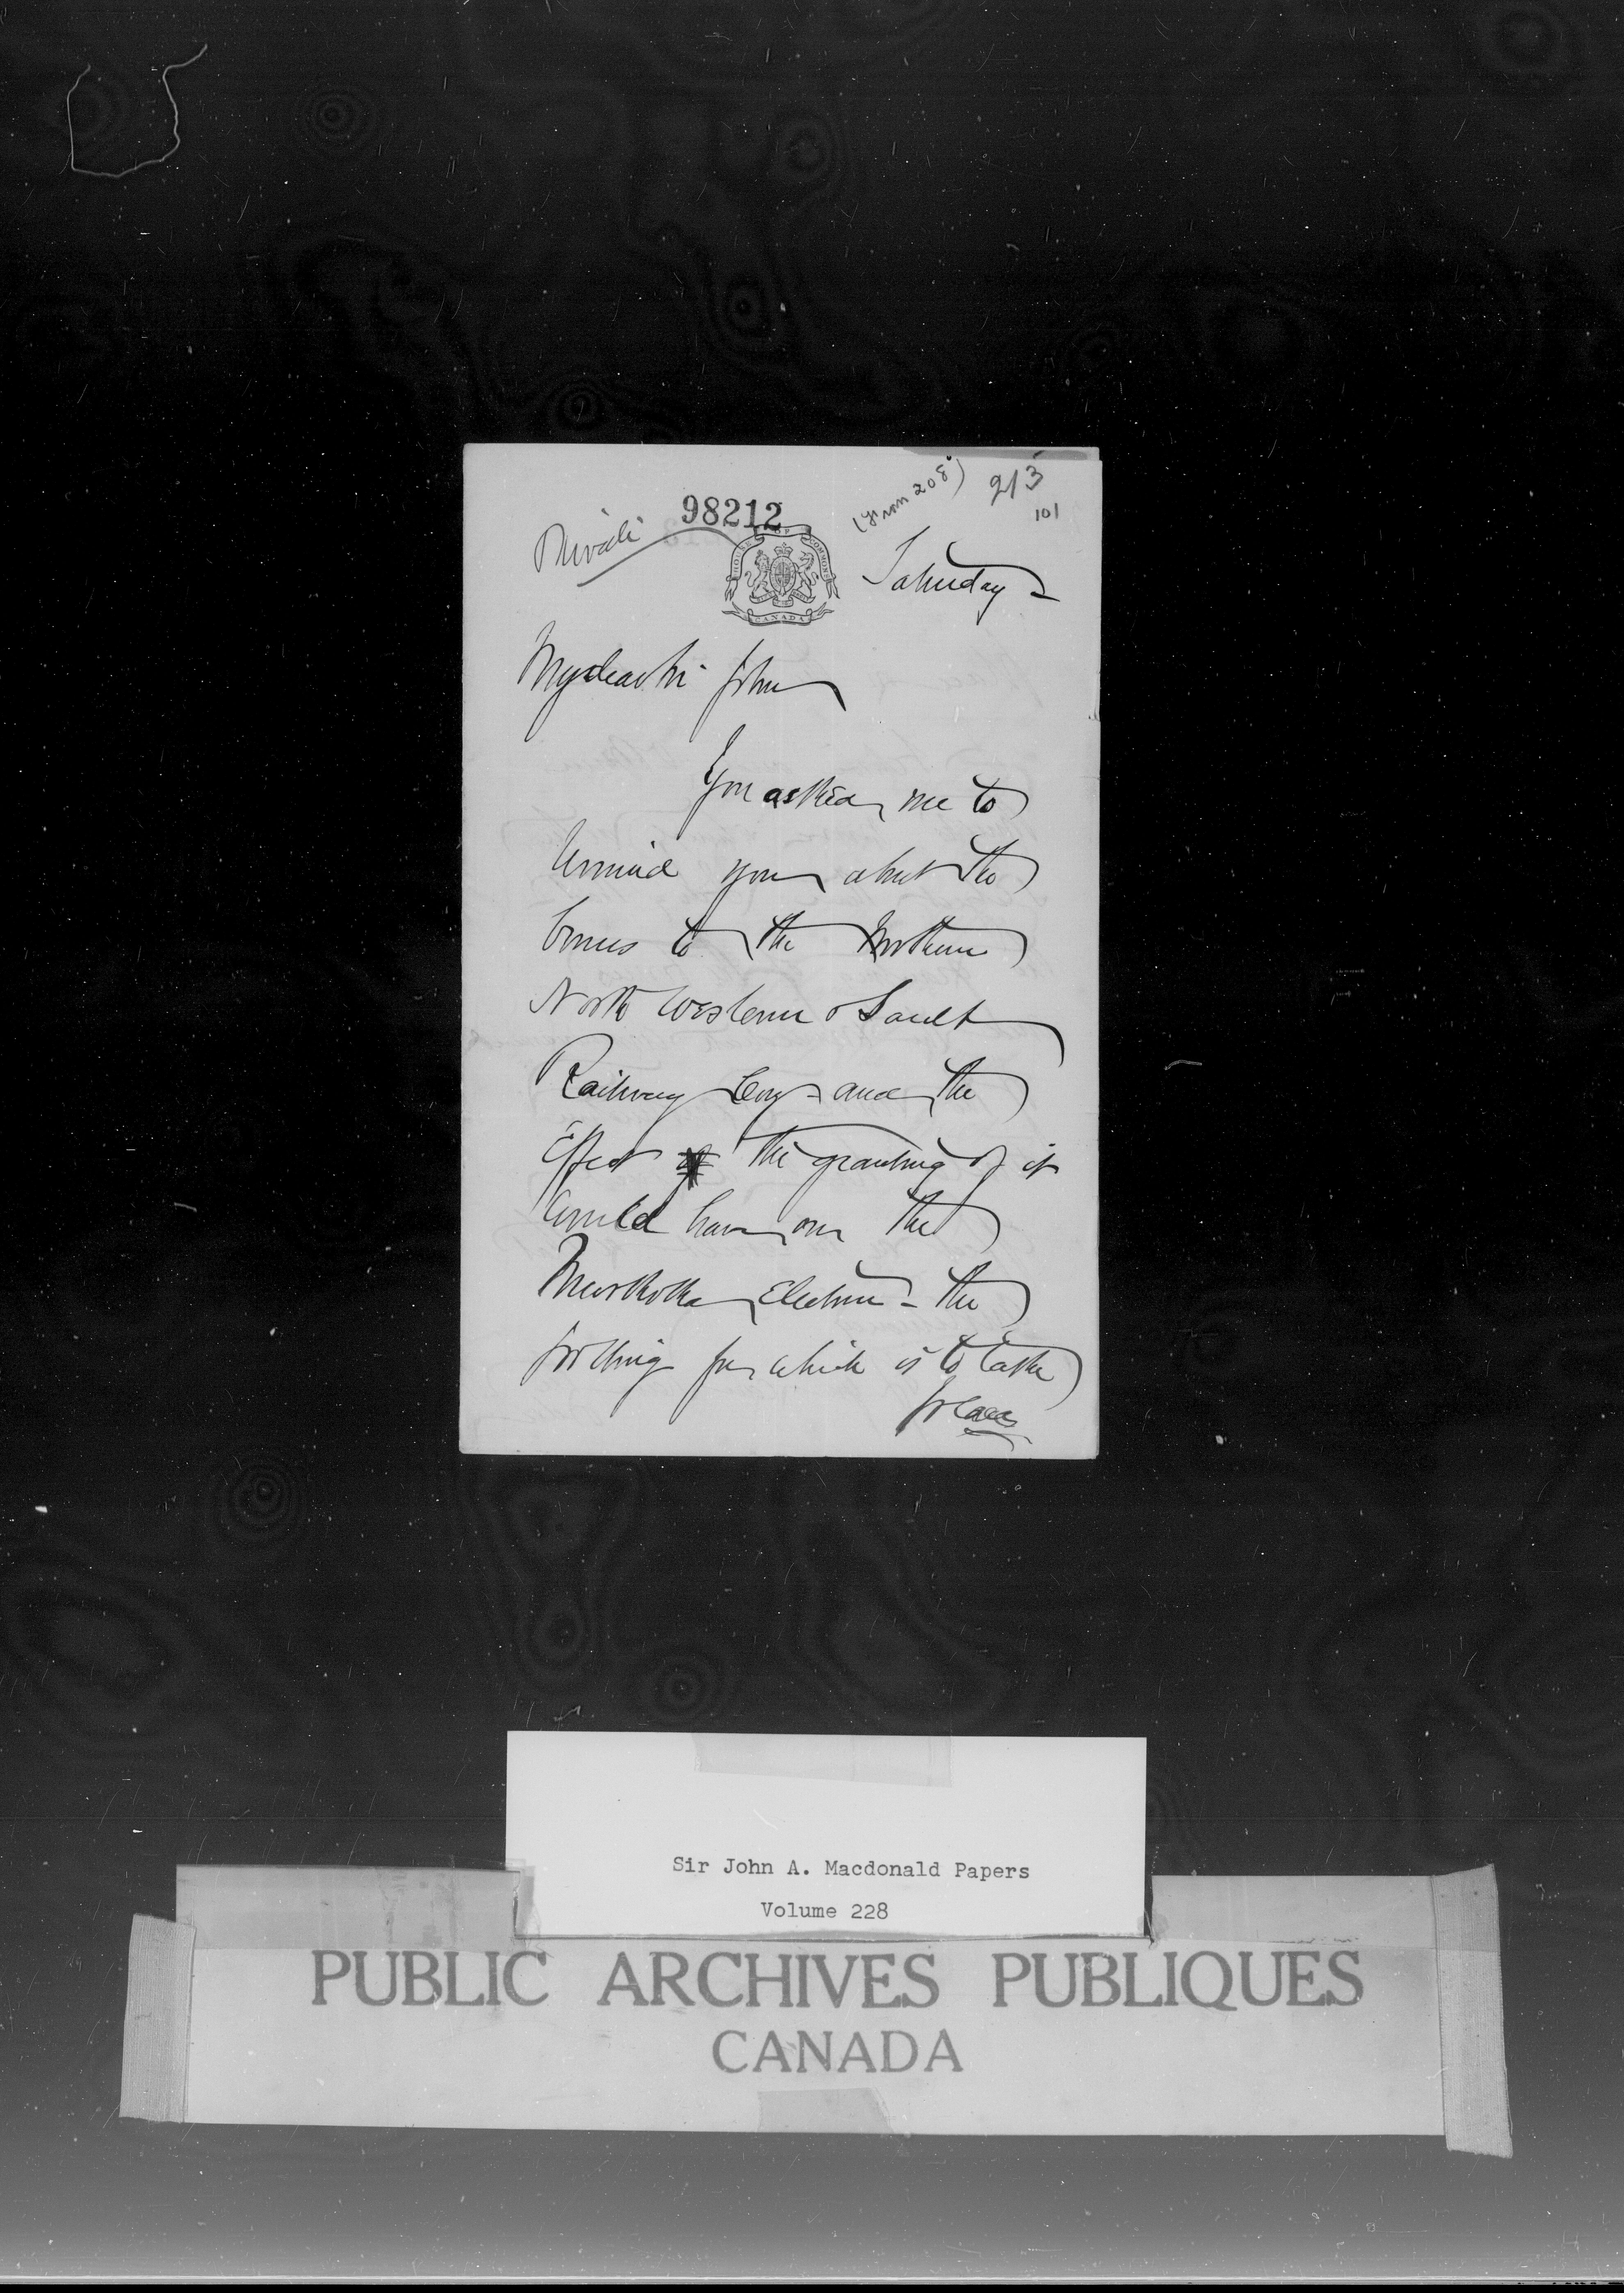 (From 208)
213
101
98212
Private
HOUSE OF COMMONS
CANADA
Saturday
My dear Sir John
You asked me to
remind you about the
bonus to the Northern
North Western & Sault
Railway Coy - and the
Effect the granting of it
would have on the
Muskoka Election - the
polling for which is to take
place
Sir John A. Macdonald Papers
Volume 228
PUBLIC ARCHIVES PUBLIQUES
CANADA